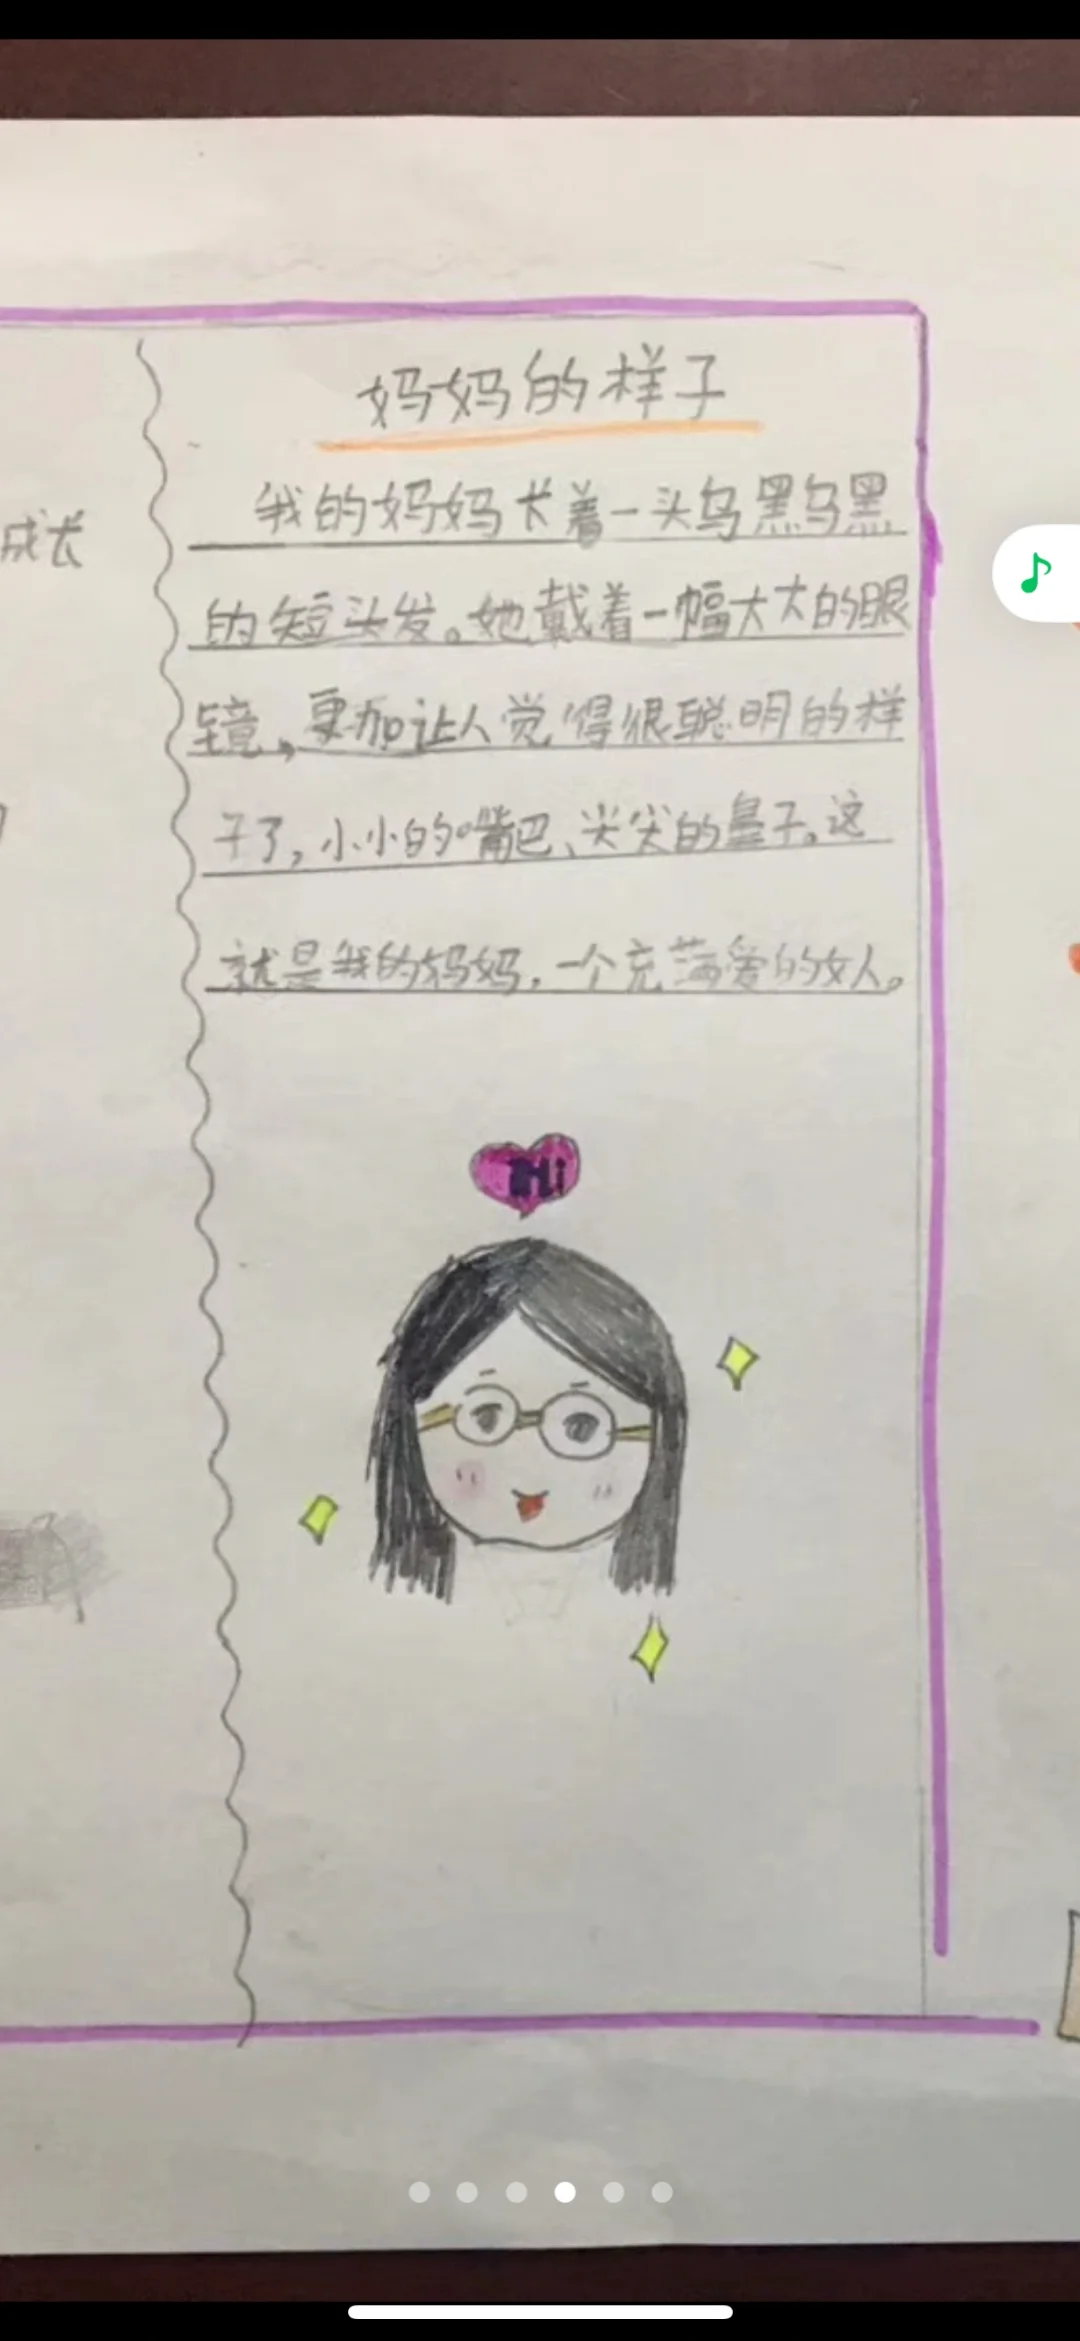 妈妈的样子
我的妈妈长着一头乌黑乌黑
成长
的短头发。她戴着一幅大大的眼
镜,更加让人觉得很聪明的样
子了,小小的嘴巴、尖尖的鼻子。这
就是我的妈妈,一个充满爱的女人。
Hi